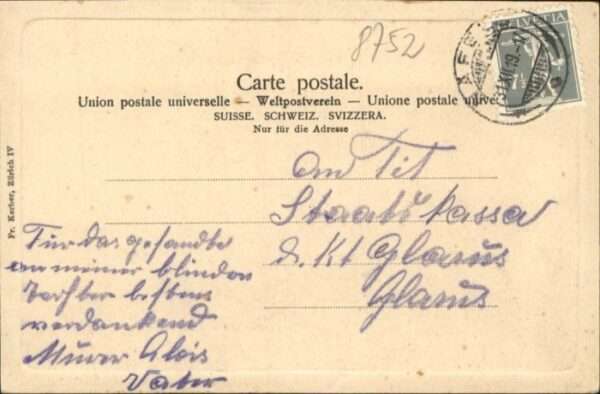 8752
HELVETIA
Carte postale.
Union postale universelle — Weltpostverein — Unione postale univer
SUISSE. SCHWEIZ. SVIZZERA.
Nur für die Adresse
Fr. Kerber, Zürich IV
an Tit
Staatskassa
d. Kt Glarus
Glarus
Für das gesandte
an meiner blinden
Tochter bestens
verdankend
Murer Alois
Vater